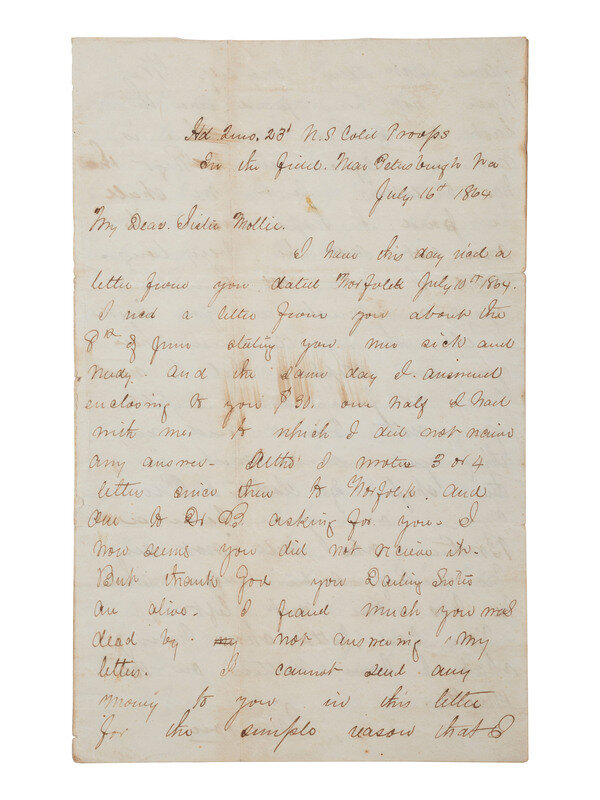 Hd Qurs. 23d U.S Cold Troops
In the field. Near Petersburgh Va
July 16th 1864
My Dear. Sister Mollie.
I have this day recd a
letter from you dated Norfolk July 10th 1864.
I recd a letter from you about the
8th of June stating you was sick and
needy. and the same day I answered
enclosing to you $30. one half I had
with me. to which I did not receive
any answer- Altho I wrote 3 or 4
letters since then to Norfolk. and
one to Dr B. asking for you- I
now seems you did not receive it-
But thank God you Darling Sister
are alive. I feared much you was
dead by my not answering my
letters. I cannot send any
money to you in this letter
for the simple reason that I